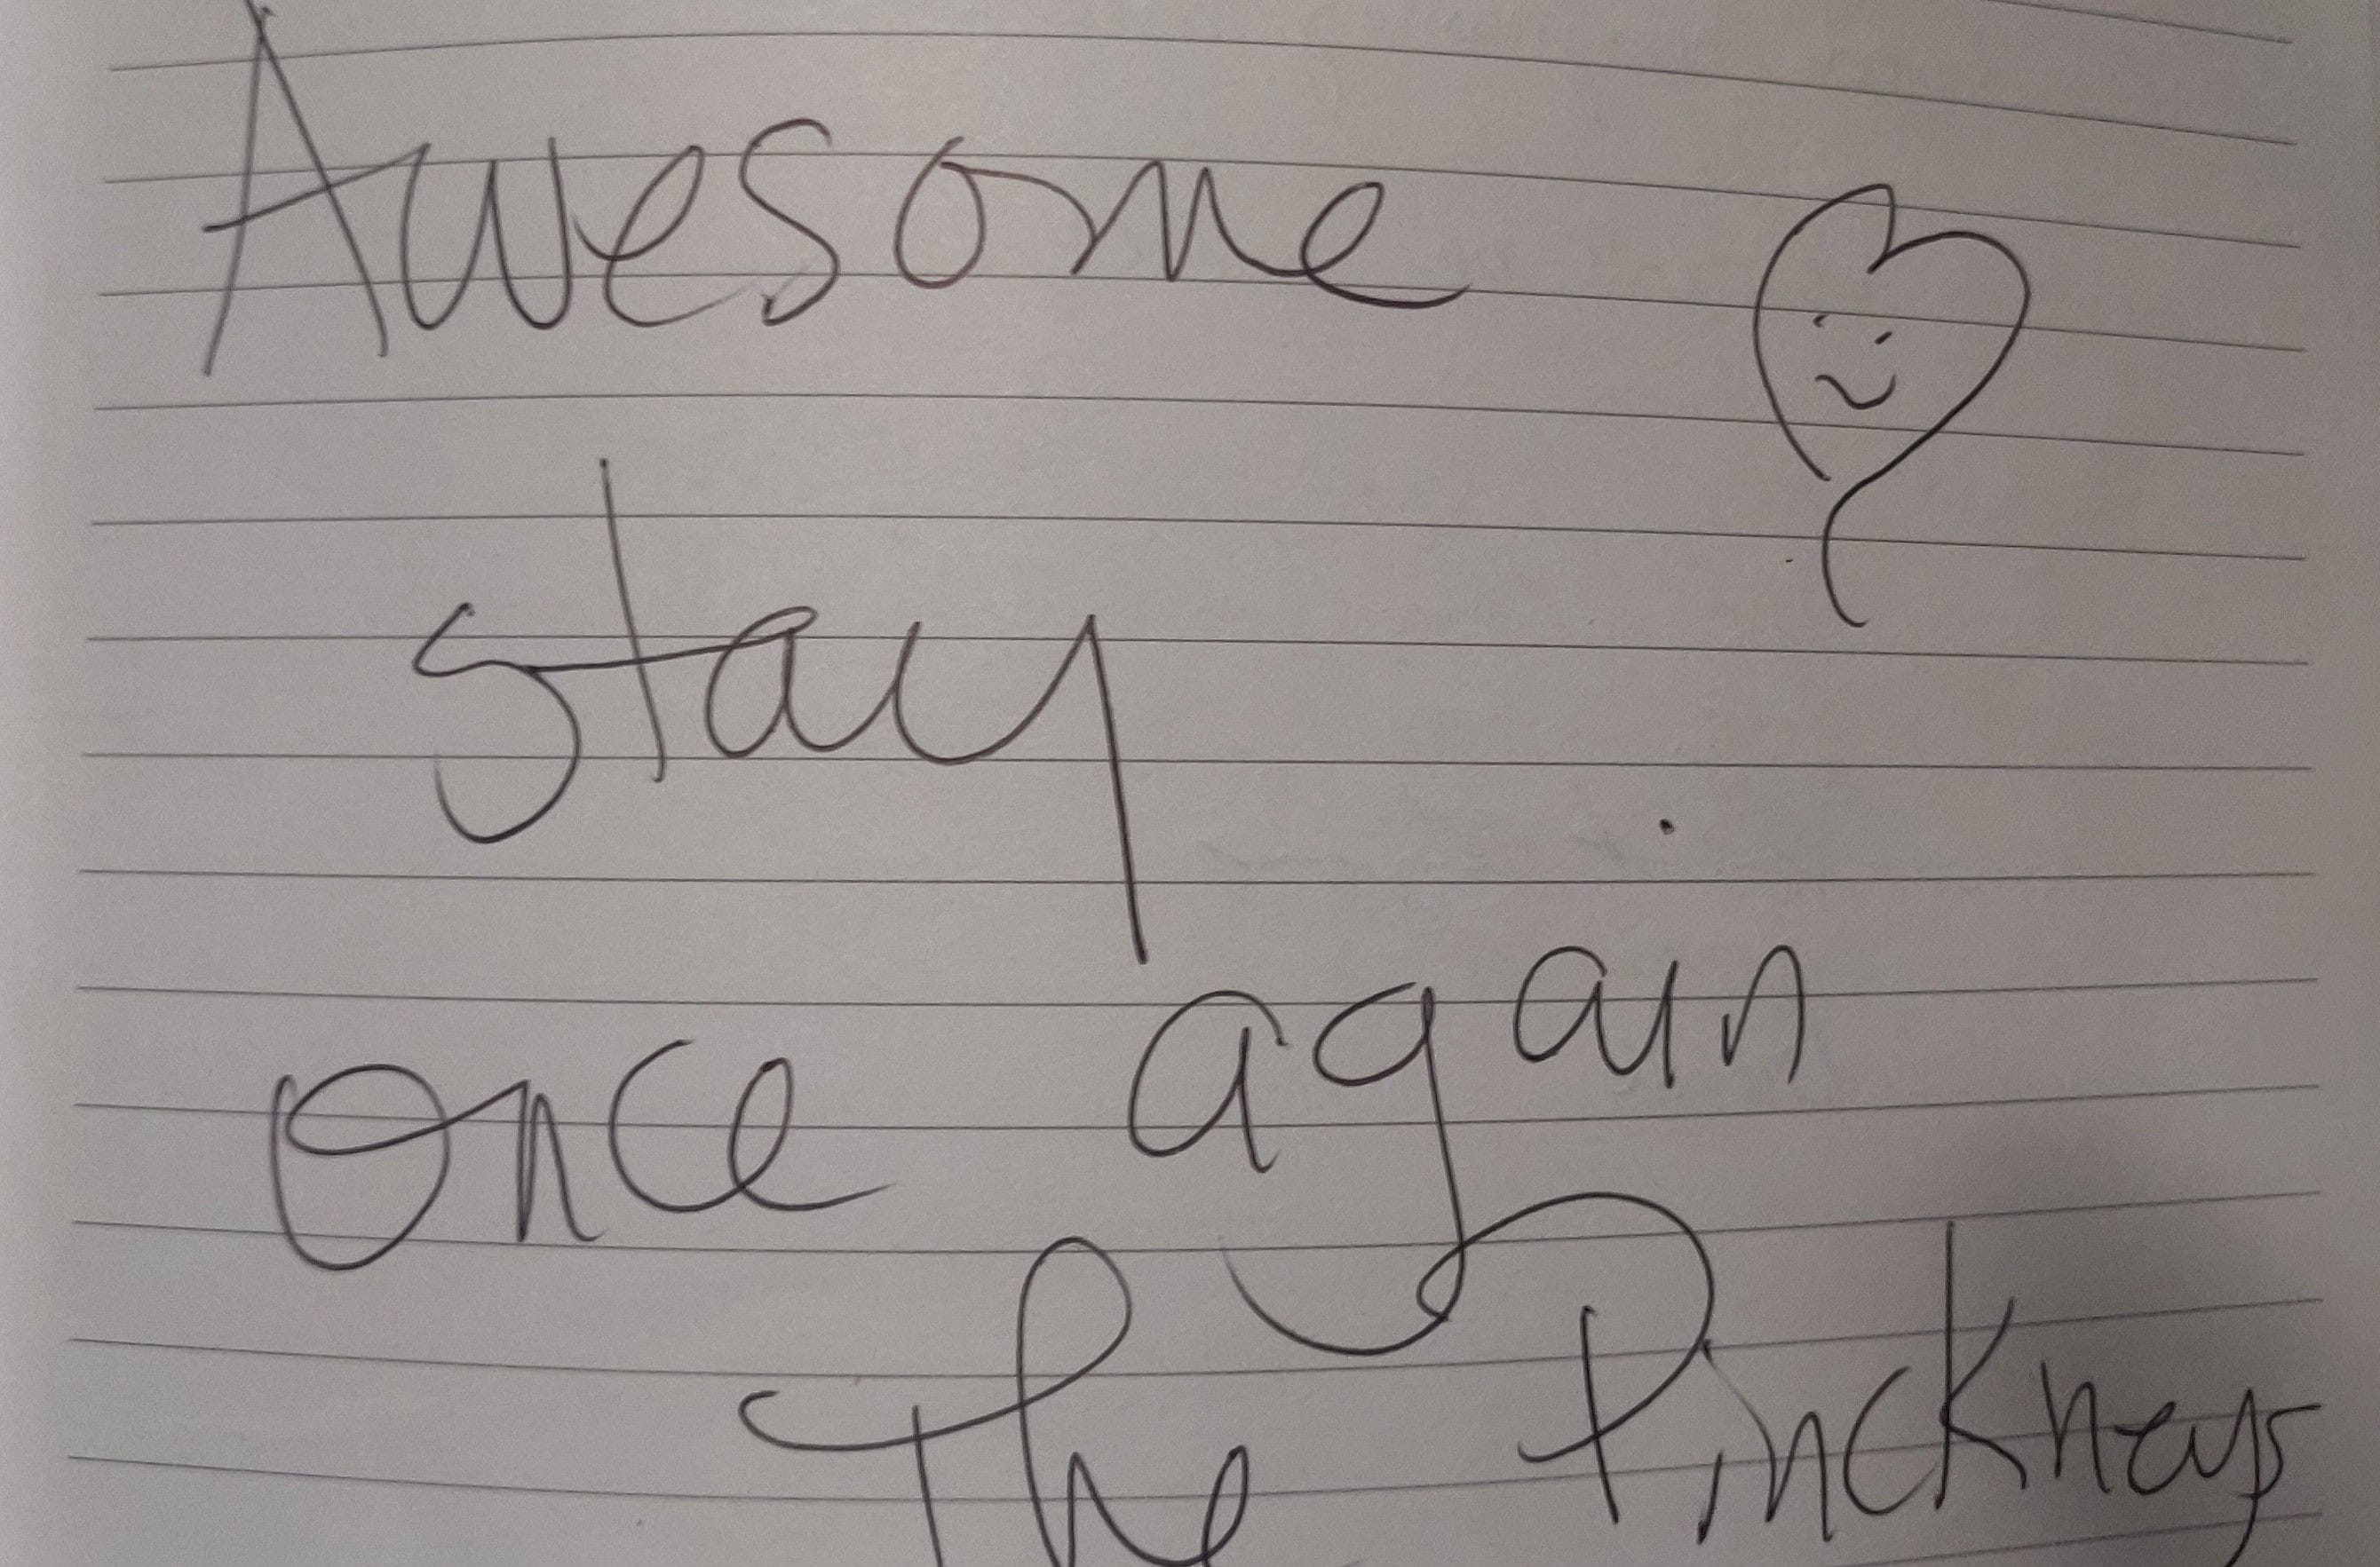 Awesome
stay
once again
The Pinckneys